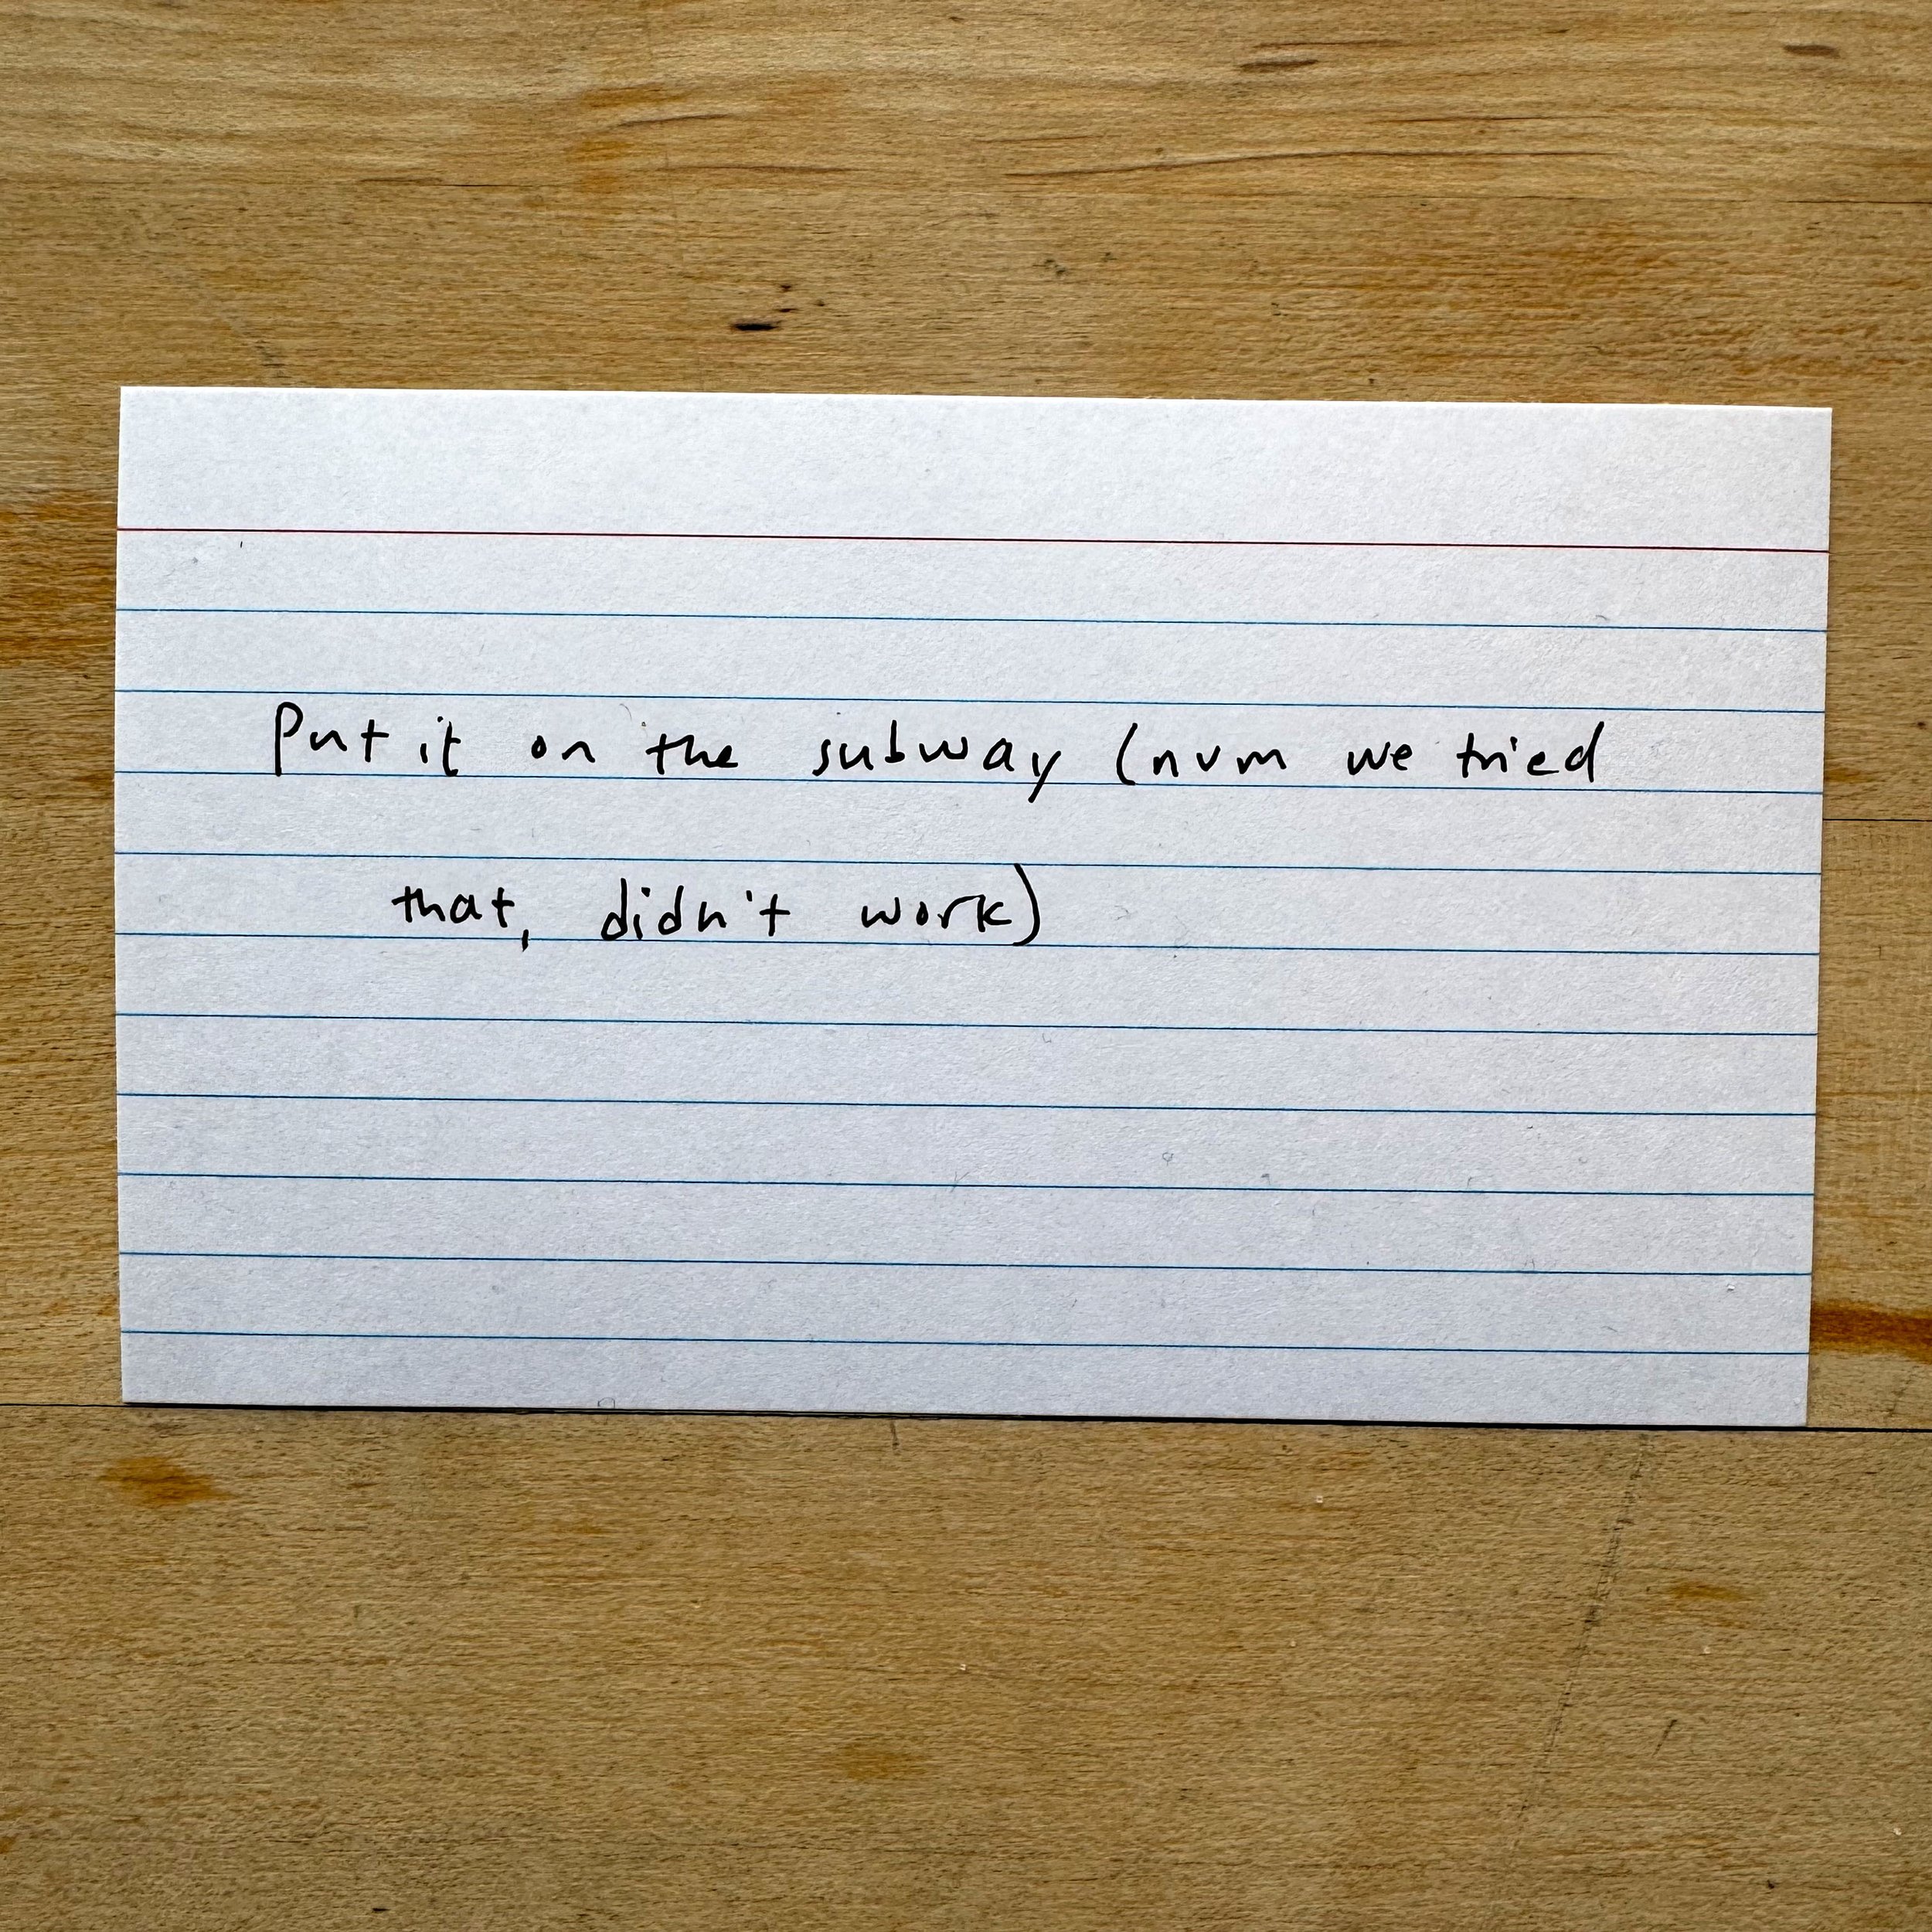 Put it on the subway (nvm we tried
that, didn't work)